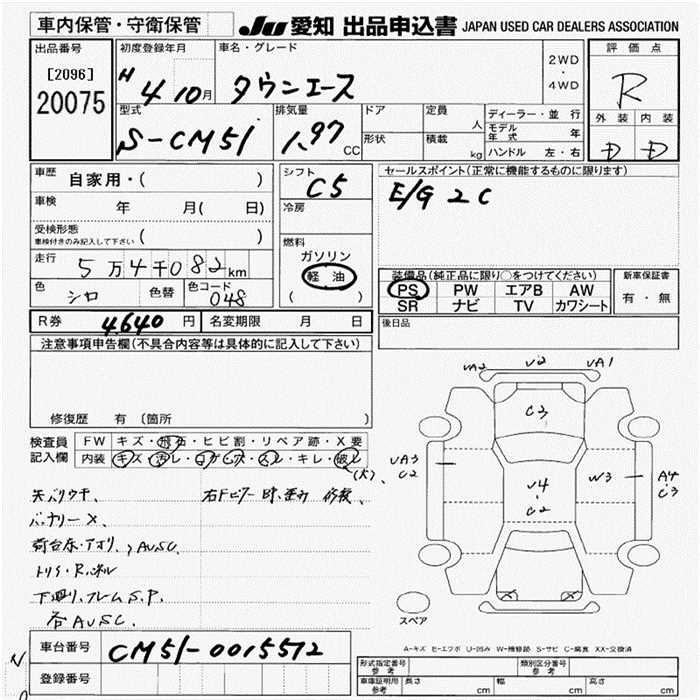 車内保管・守衛保管 JU 愛知 出品申込書 JAPAN USED CAR DEALERS ASSOCIATION
出品番号 [2096] 20075
初度登録年月 H4 10月
車名・グレード タウンエース
2WD ・ 4WD
評価点 R
外装 D 内装 D
型式 S-CM51
排気量 1.97 CC
ドア 形状
定員 人 積載 kg
ディーラー・並行
モデル年式 年
ハンドル 左・右
車歴 自家用・( )
車検 年 月( 日)
受検形態 車検付きのみ記入して下さい ( )
走行 5万4千082km
色 シロ 色替 色コード 048
シフト C5
冷房
燃料 ガソリン 軽油 ( )
セールスポイント(正常に機能するものに限ります)
E/G 2C
装備品(純正品に限り○をつけてください)
PS PW エアB AW
SR ナビ TV カワシート
新車保証書 有・無
R券 4,640円 名変期限 月 日
後日品
注意事項申告欄(不具合内容等は具体的に記入して下さい)
修復歴 有 〔箇所
検査員記入欄
FW キズ・飛石・ヒビ割・リペア跡・X要
内装 キズ・汚レ・コゲ・穴・スレ・キレ・破レ
(大)、
バッテリーX、
荷台床・アオリ、AUSC.
下廻り、フレームS.P.
各AUSC.
UA2 U2 UA1
C3
UA3 C2
U4 C2
W3
A4 C3
スペア
A-キズ E-エクボ U-凹み W-補修跡 S-サビ C-腐食 XX-交換済
車台番号 CM51-0015572
登録番号
形式指定番号 参考
類別区分番号 参考
車庫証明用 参考 長さ cm 幅 cm 高さ cm